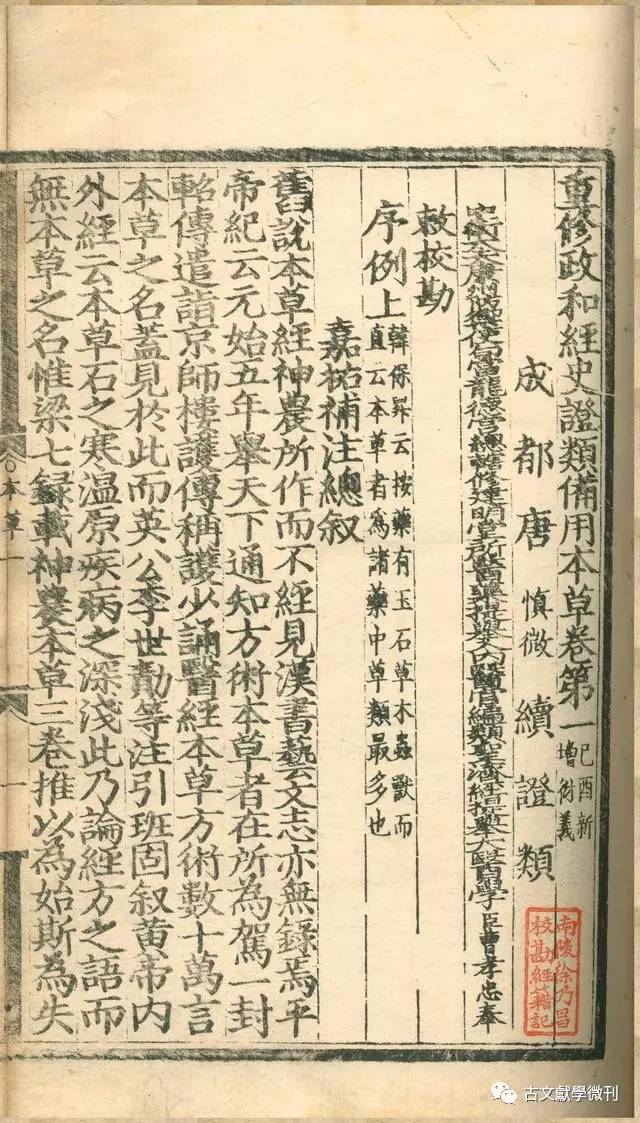 重修政和經史證類備用本草卷第一
己酉新
增衍義
成都唐慎微續證類
中衛大夫康州防禦使句當龍德宮總轄修建明堂所醫藥提舉入內醫官編類聖濟經提舉大醫學臣曹孝忠奉
敕校勘
序例上
韓保昇云按藥有玉石草木蟲獸而
直云本草者為諸藥中草類最多也
嘉祐補注總叙
舊說本草經神農所作而不經見漢書藝文志亦無錄焉平
帝紀云元始五年舉天下通知方術本草者在所為駕一封
軺傳遣詣京師樓護傳稱護少誦醫經本草方術數十萬言
本草之名蓋見於此而英公李世勣等注引班固叙黃帝內
外經云本草石之寒溫原疾病之深淺此乃論經方之語而
無本草之名惟梁七録載神農本草三卷推以為始斯為失
本草一
一
南陵徐乃昌
校勘經籍記
古文獻學微刊